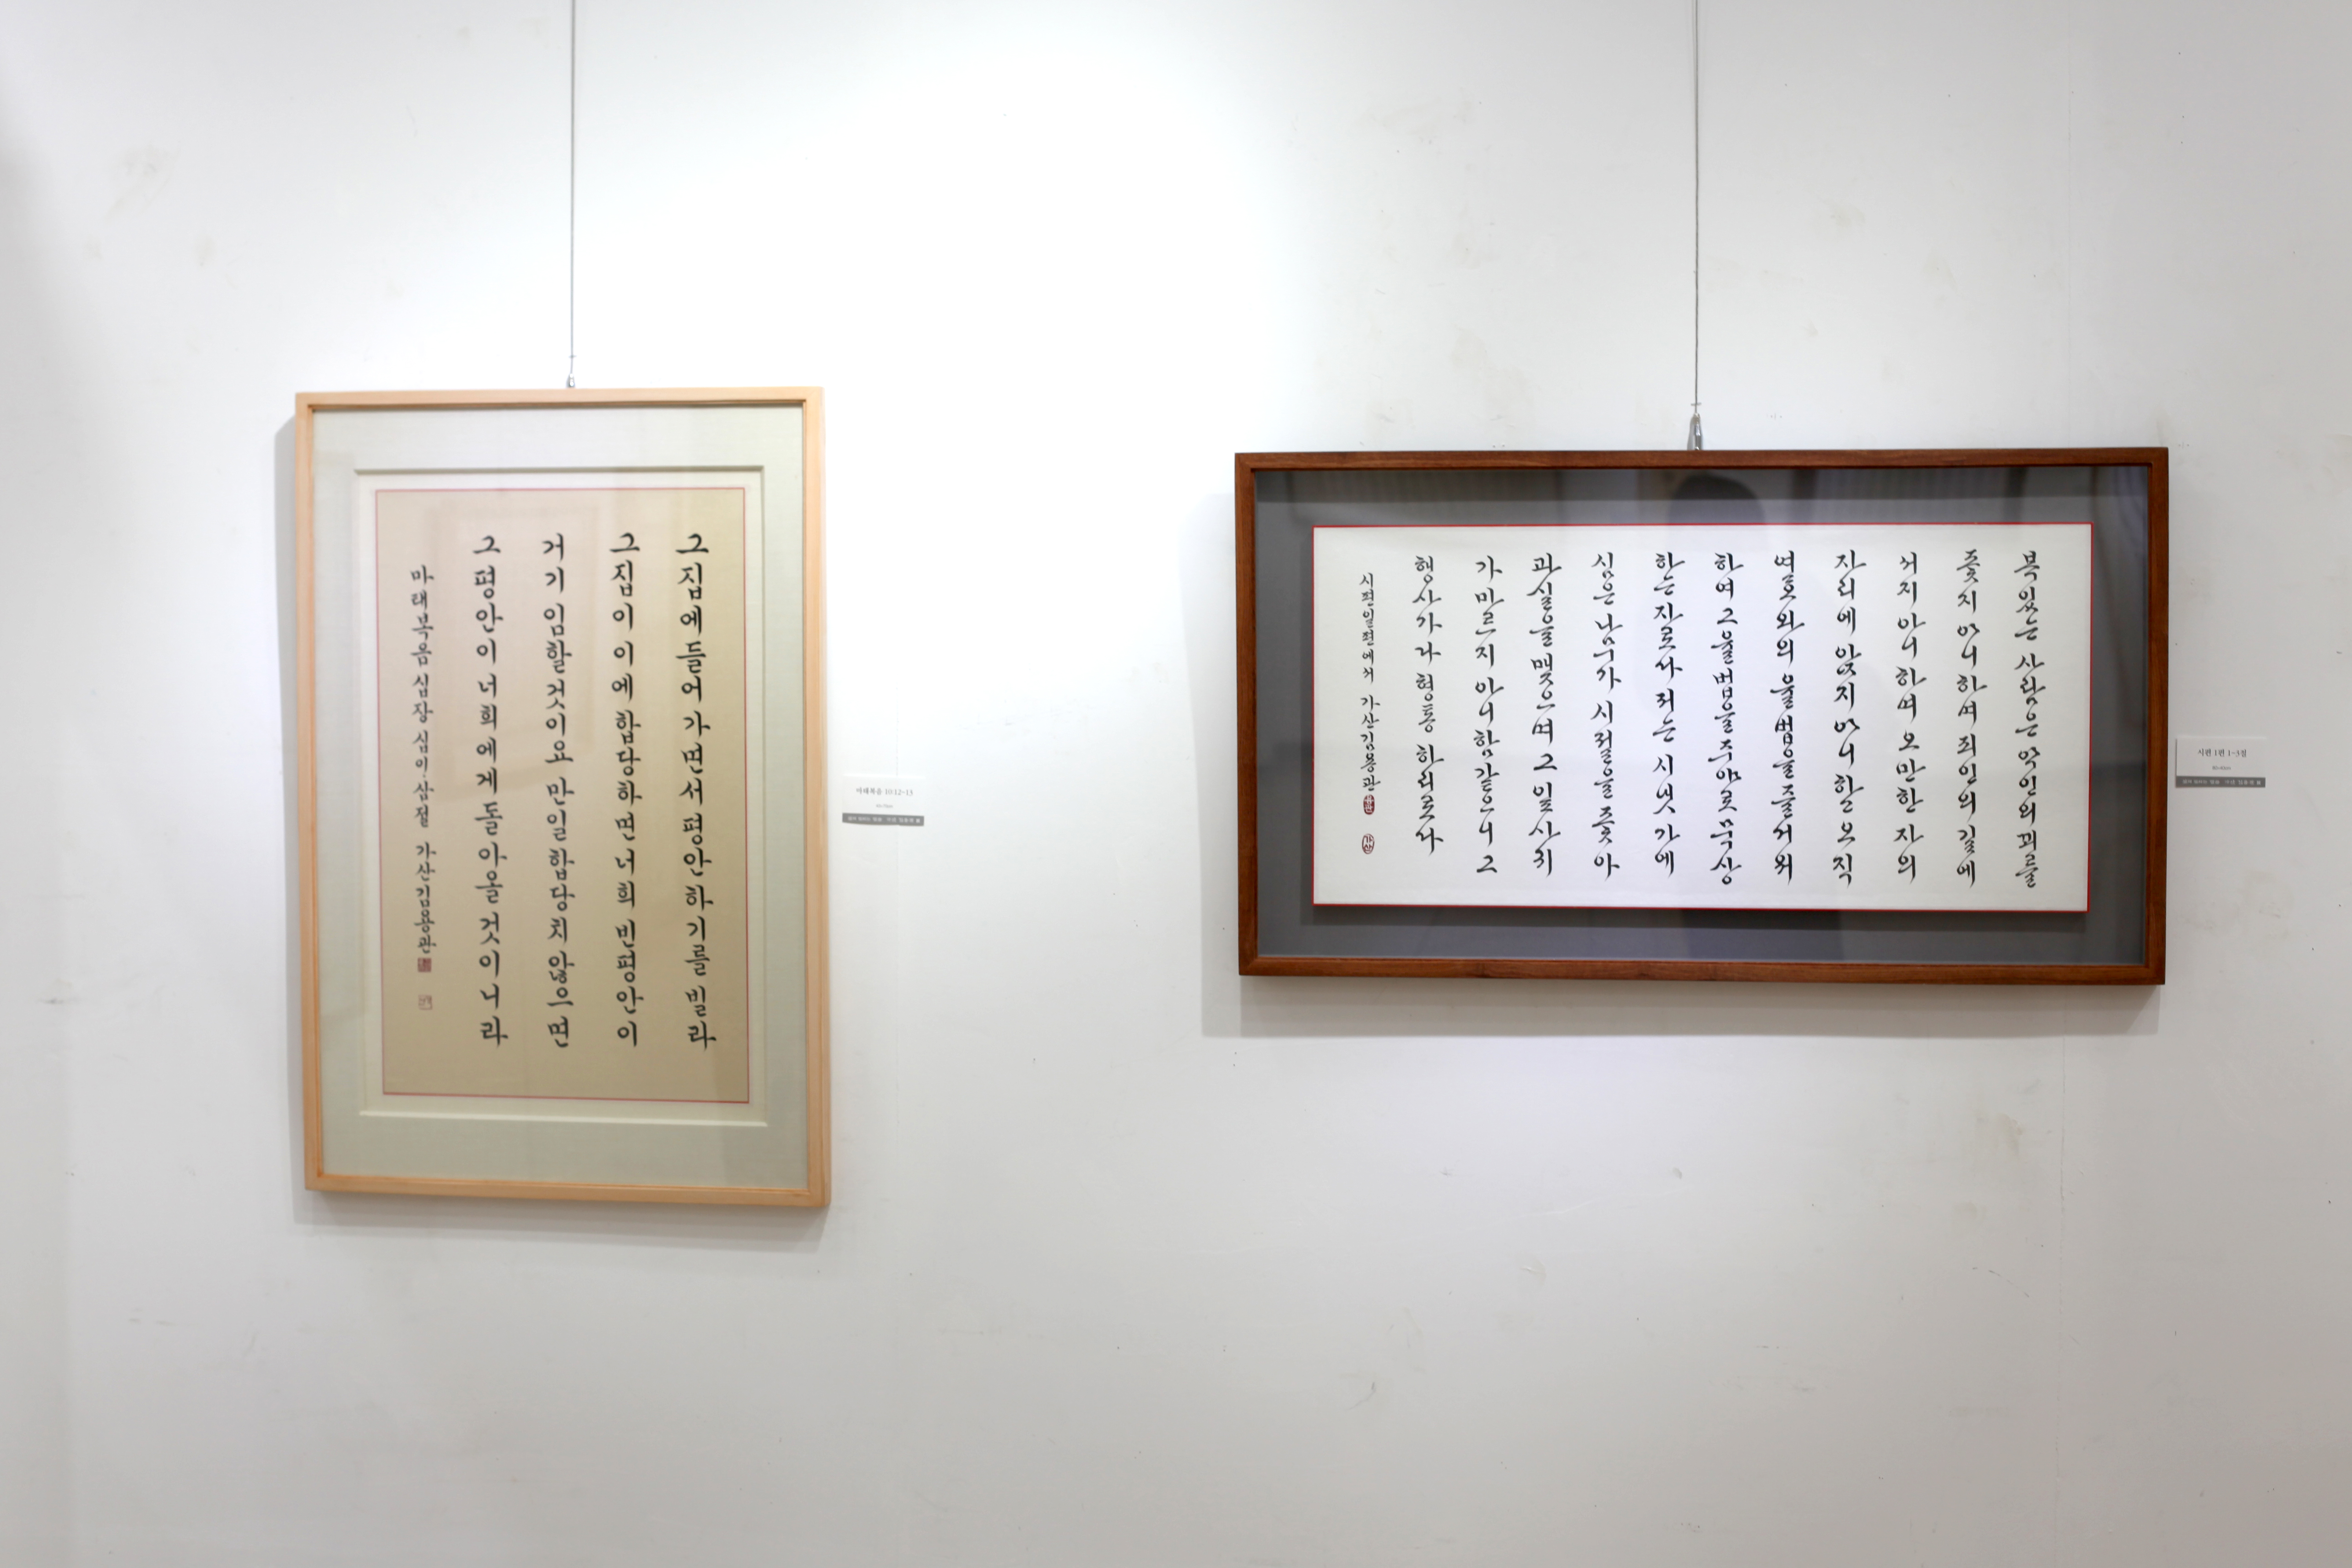 그집에들어가면서평안하기를빌라
그집이이에합당하면너희빈평안이
거기임할것이요만일합당치않으면
그평안이너희에게돌아올것이니라
마태복음십장십이·삼절 가산김용관
마태복음 10:12~13
복있는사람은악인의꾀를
좇지아니하며죄인의길에
서지아니하며오만한자의
자리에앉지아니하고오직
여호와의율법을즐거워
하여그율법을주야로묵상
하는자로다저는시냇가에
심은나무가시절을좇아
과실을맺으며그잎사귀
가마르지아니함같으니그
행사가다형통하리로다
시편일편에서 가산김용관
가산
시편 1편 1~3절